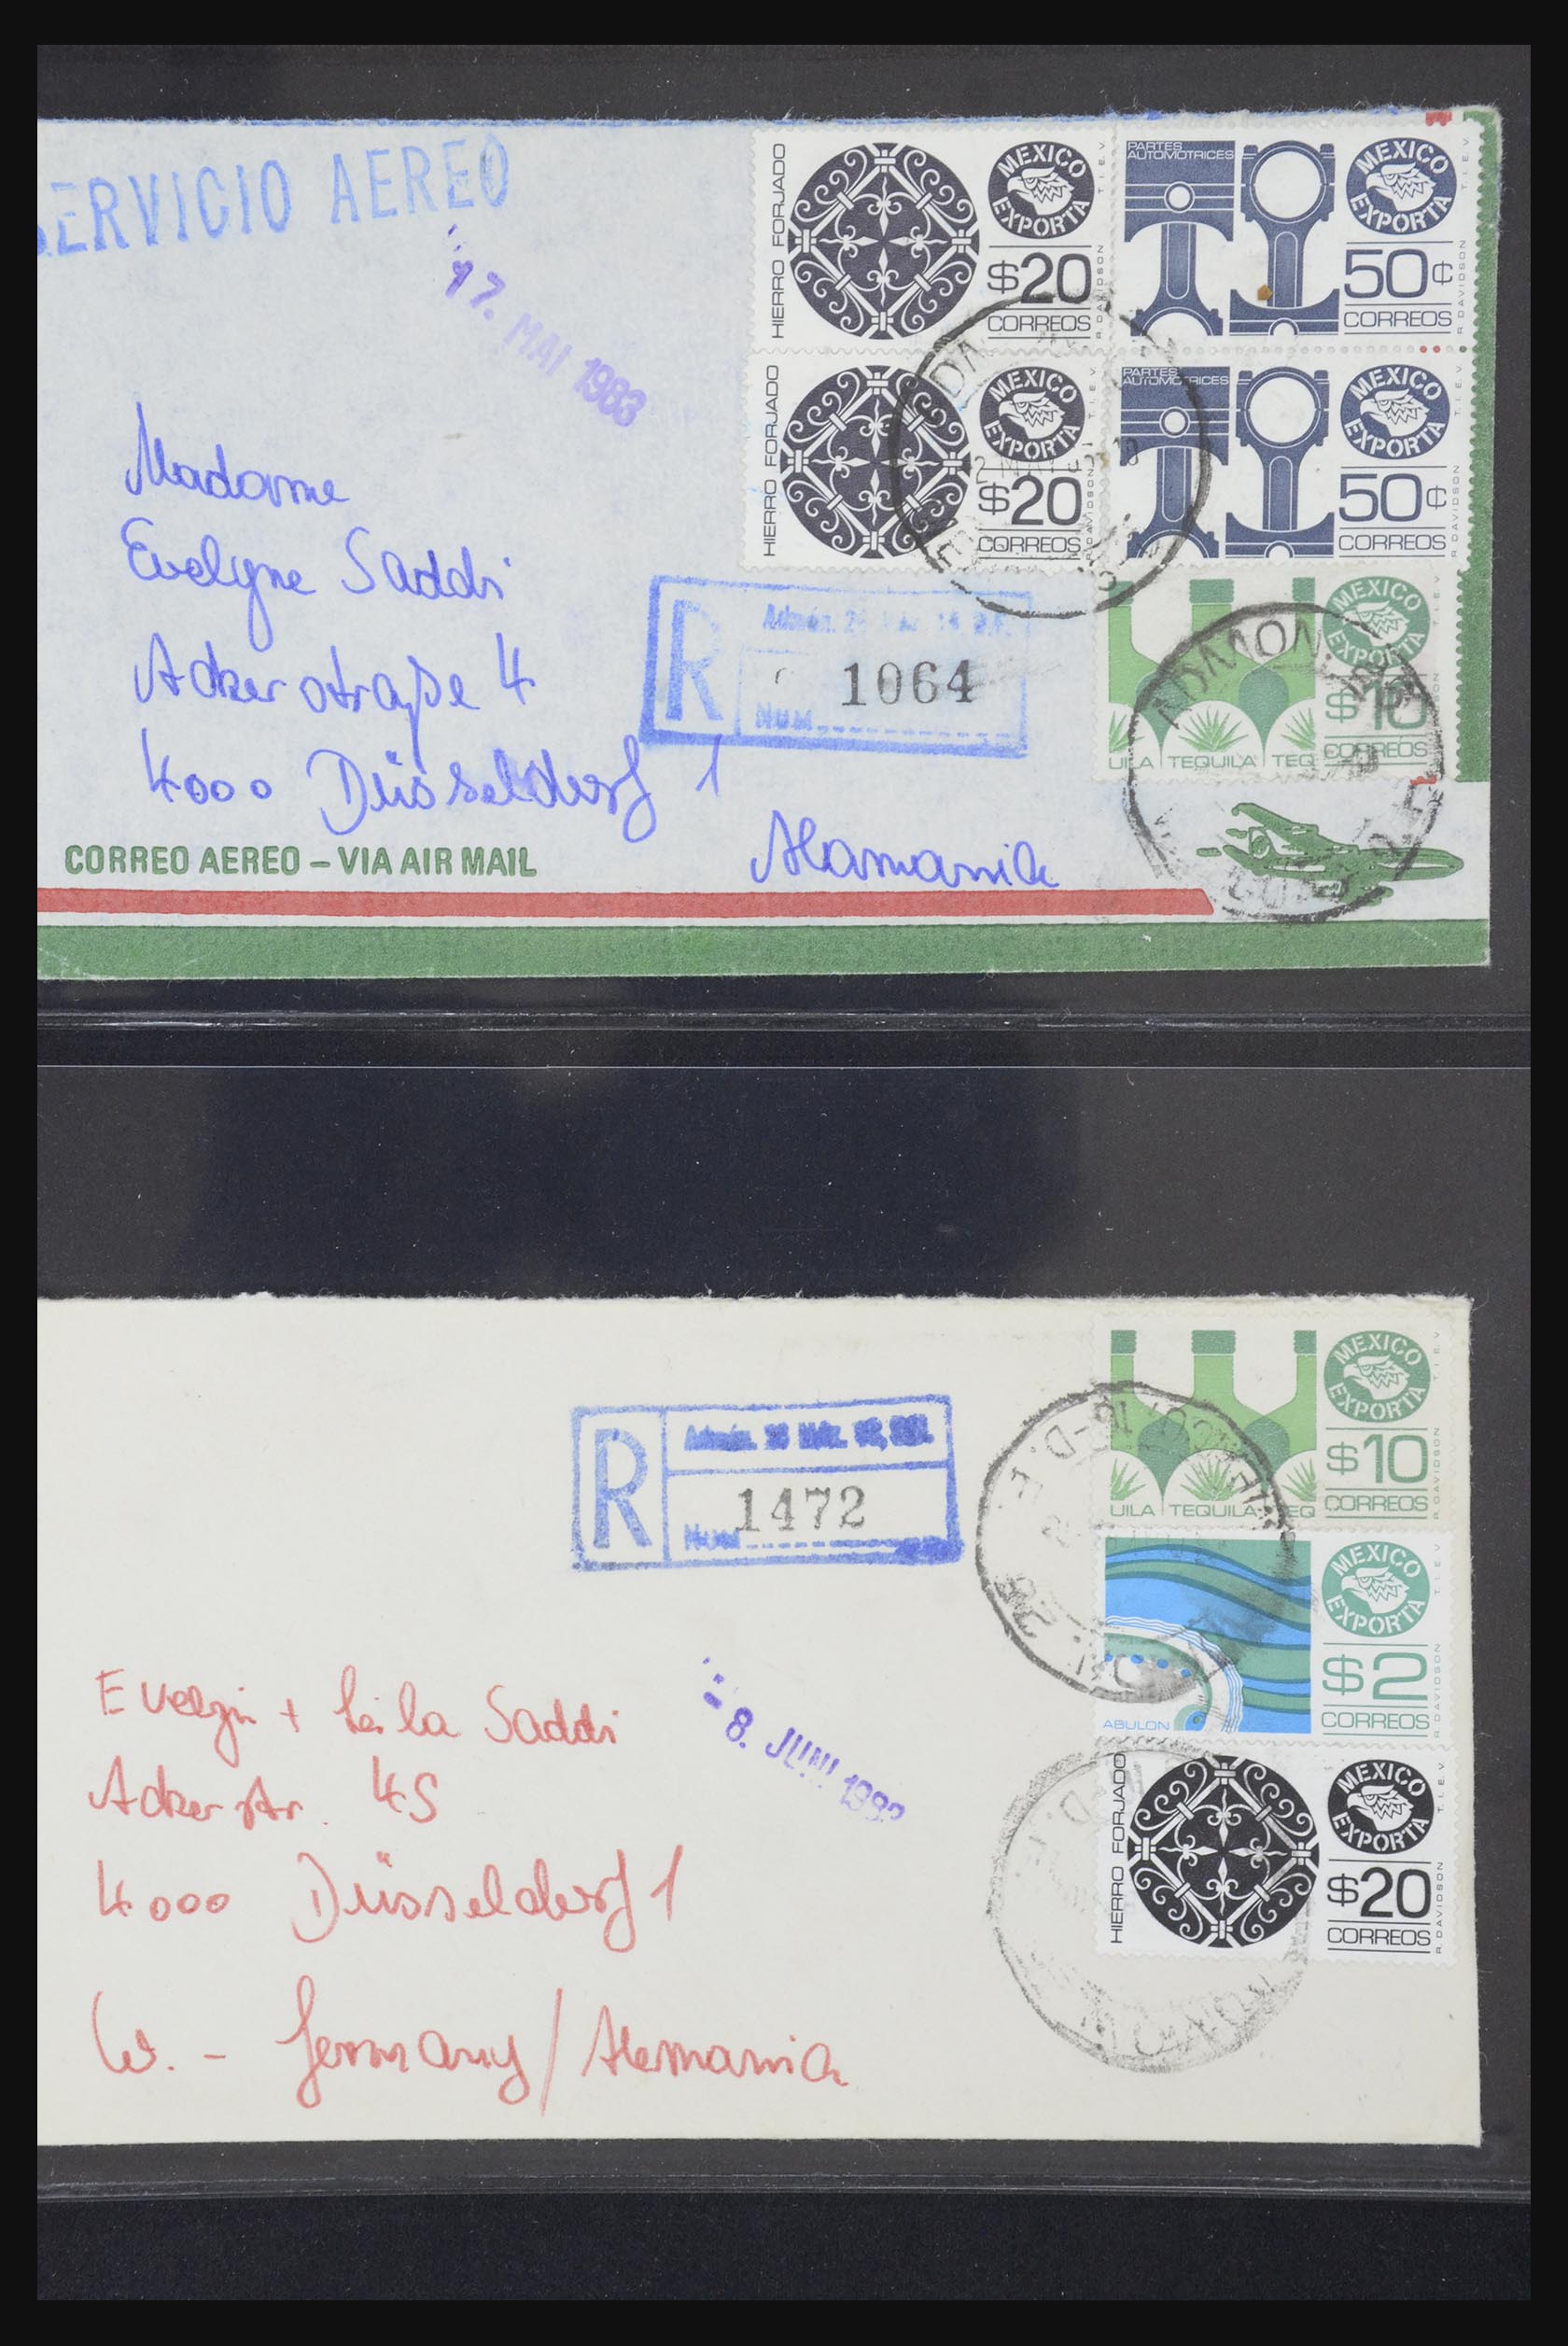 SERVICIO AEREO
17. MAI 1983
HIERRO FORJADO
MEXICO EXPORTA
T.I.E.V.
$20
CORREOS
R. DAVIDSON
PARTES AUTOMOTRICES
MEXICO EXPORTA
T.I.E.V.
50¢
CORREOS
R. DAVIDSON
HIERRO FORJADO
MEXICO EXPORTA
T.I.E.V.
$20
CORREOS
R. DAVIDSON
PARTES AUTOMOTRICES
MEXICO EXPORTA
T.I.E.V.
50¢
CORREOS
R. DAVIDSON
Madame
Evelyne Saddi
Ackerstraße 4
4000 Düsseldorf 1
Alemania
R
Admón.
1064
NUM
MEXICO EXPORTA
T.I.E.V.
$10
CORREOS
R. DAVIDSON
UILA TEQUILA TEQ
CORREO AEREO – VIA AIR MAIL
MEXICO EXPORTA
T.I.E.V.
$10
CORREOS
R. DAVIDSON
UILA TEQUILA TEQ
R
1472
NUM
MEXICO EXPORTA
T.I.E.V.
$2
CORREOS
R. DAVIDSON
ABULON
- 8. JUNI 198
HIERRO FORJADO
MEXICO EXPORTA
T.I.E.V.
$20
CORREOS
R. DAVIDSON
Evelyn + Leila Saddi
Ackerstr. 45
4000 Düsseldorf 1
W. - Germany / Alemania